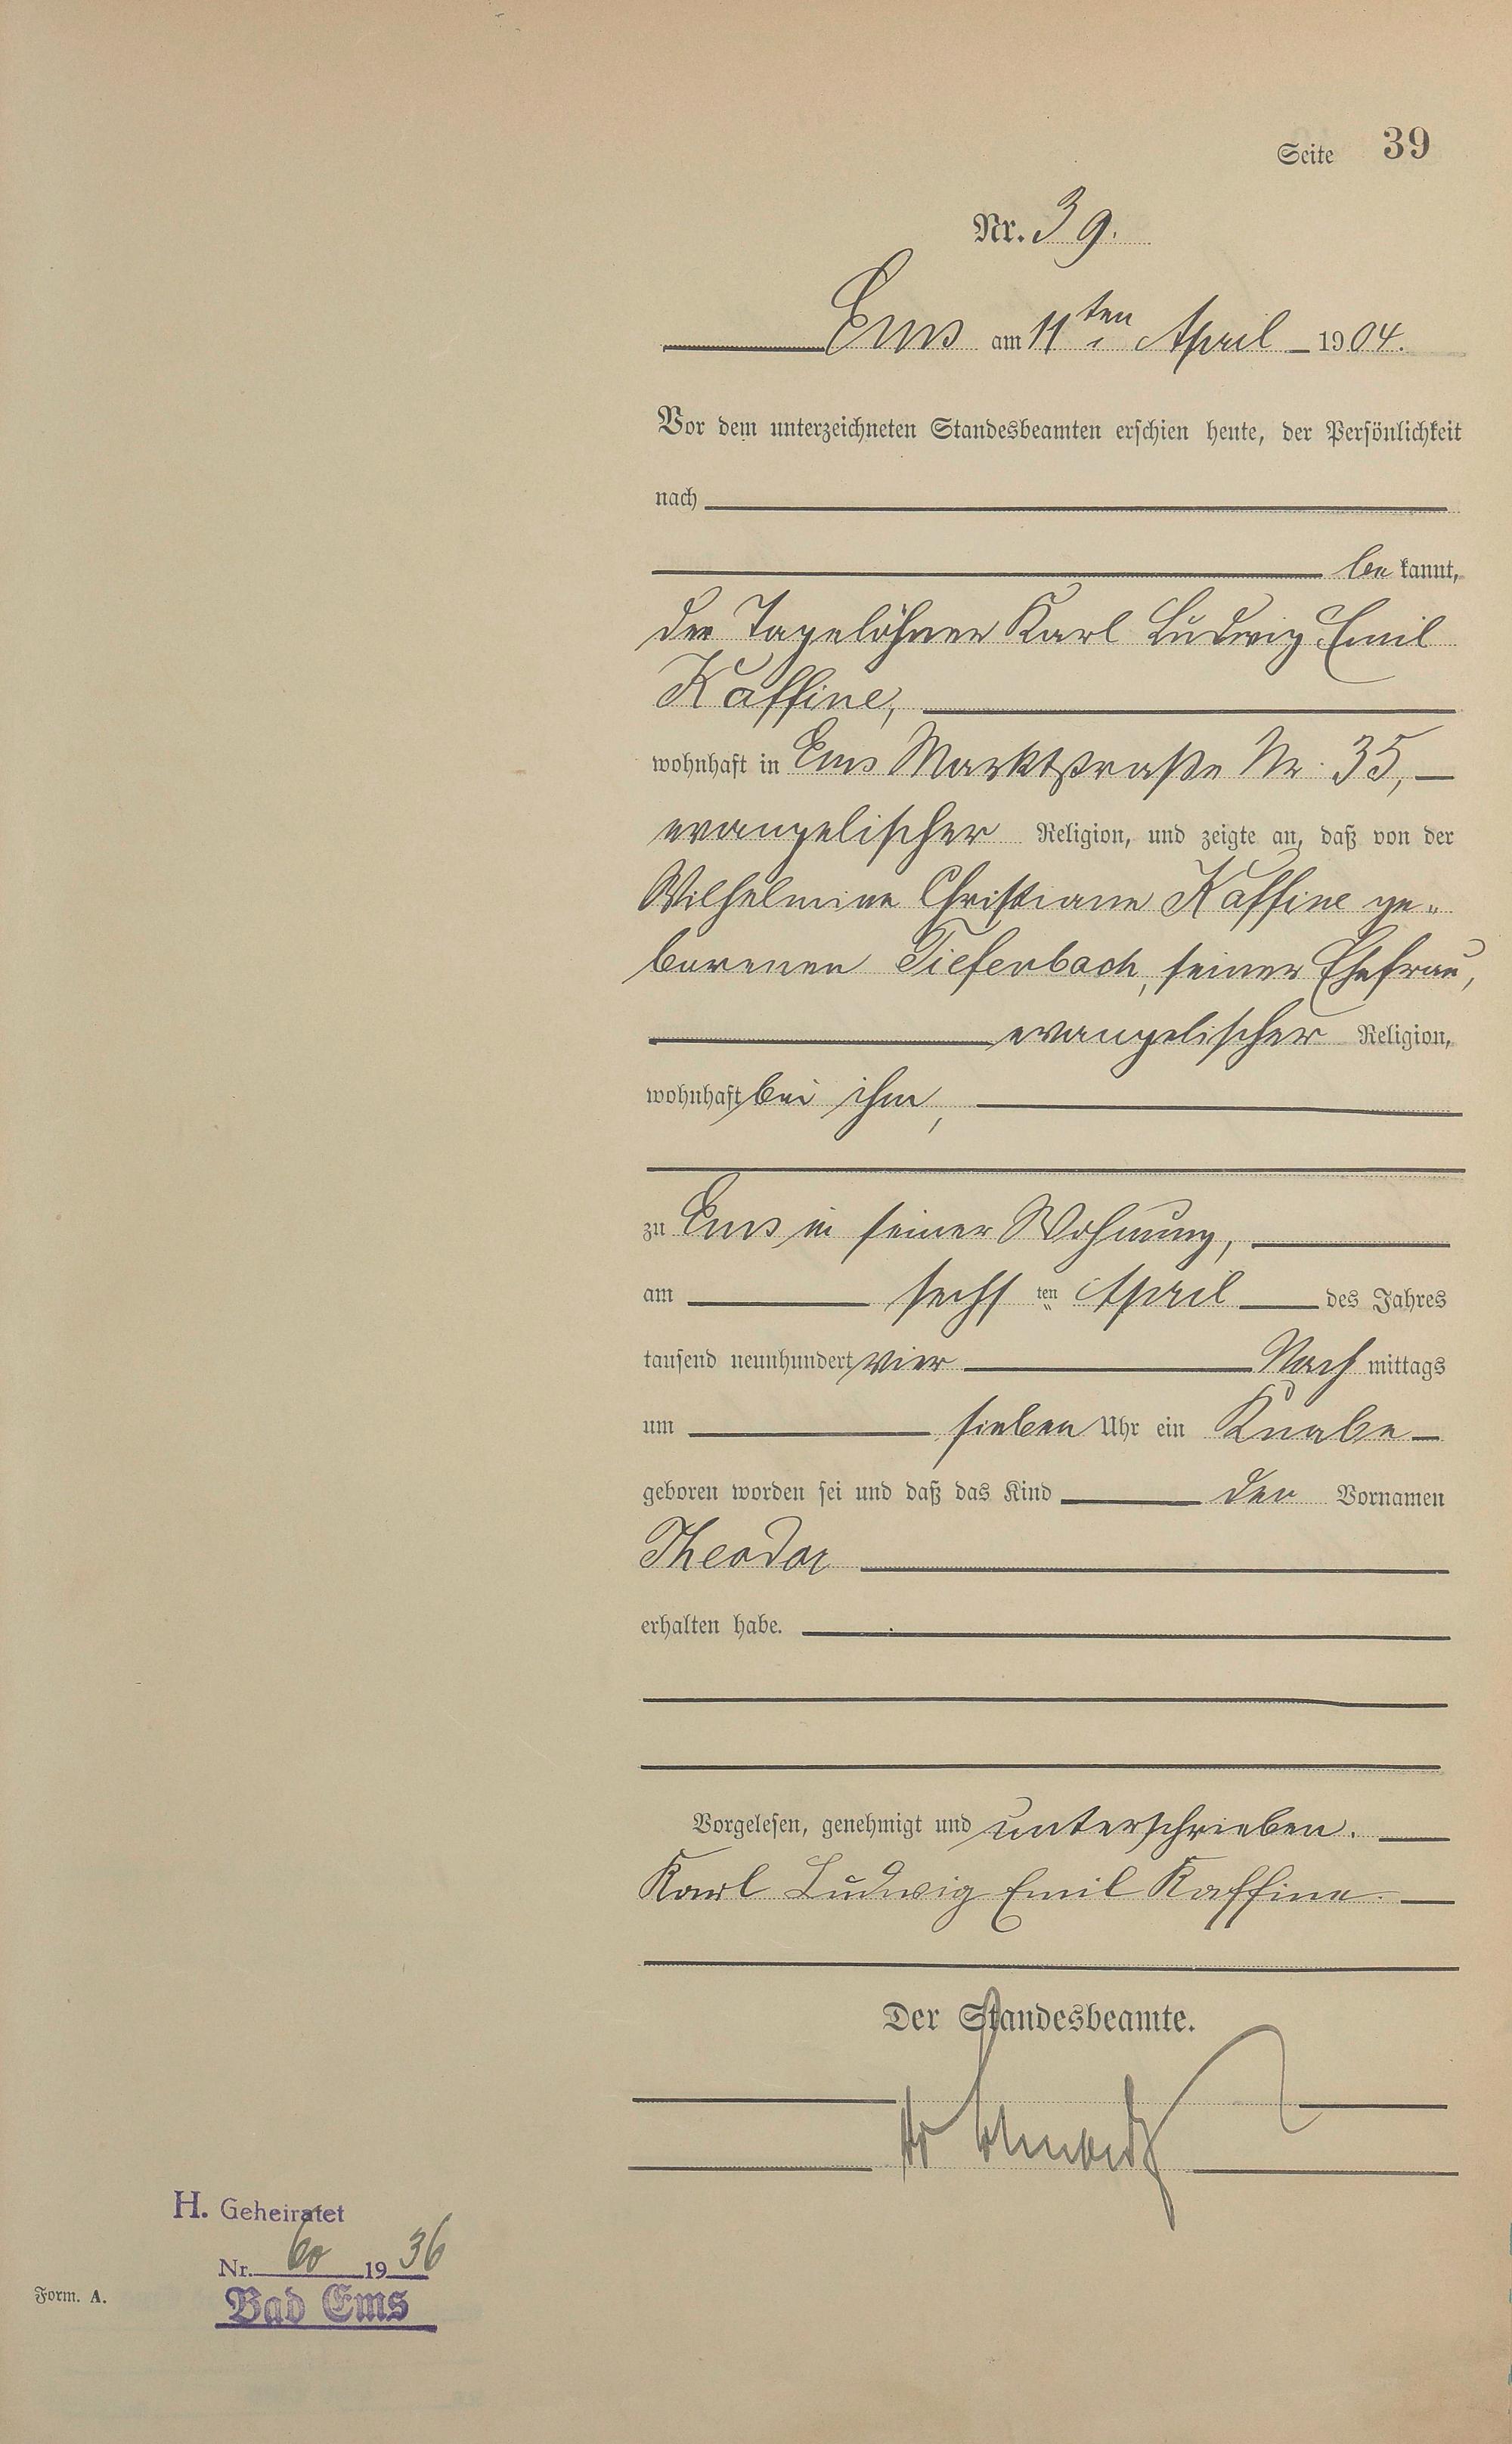 Seite 39
Nr. 39.
Ems am 11ten April 1904.
Vor dem unterzeichneten Standesbeamten erschien heute, der Persönlichkeit
nach
be kannt,
der Tagelöhner Karl Ludwig Emil
Kaffine,
wohnhaft in Ems Marktstraße Nr. 35,
evangelischer Religion, und zeigte an, daß von der
Wilhelmine Christiane Kaffine ge-
borenen Tiefenbach, seiner Ehefrau,
evangelischer Religion,
wohnhaft bei ihm,
zu Ems in seiner Wohnung,
am sechsten April des Jahres
tausend neunhundert vier Nachmittags
um sieben Uhr ein Knabe
geboren worden sei und daß das Kind den Vornamen
Theodor
erhalten habe.
Vorgelesen, genehmigt und unterschrieben.
Karl Ludwig Emil Kaffine.
Der Standesbeamte.
H. Geheiratet
Nr. 60 1936
Bad Ems
Form. A.